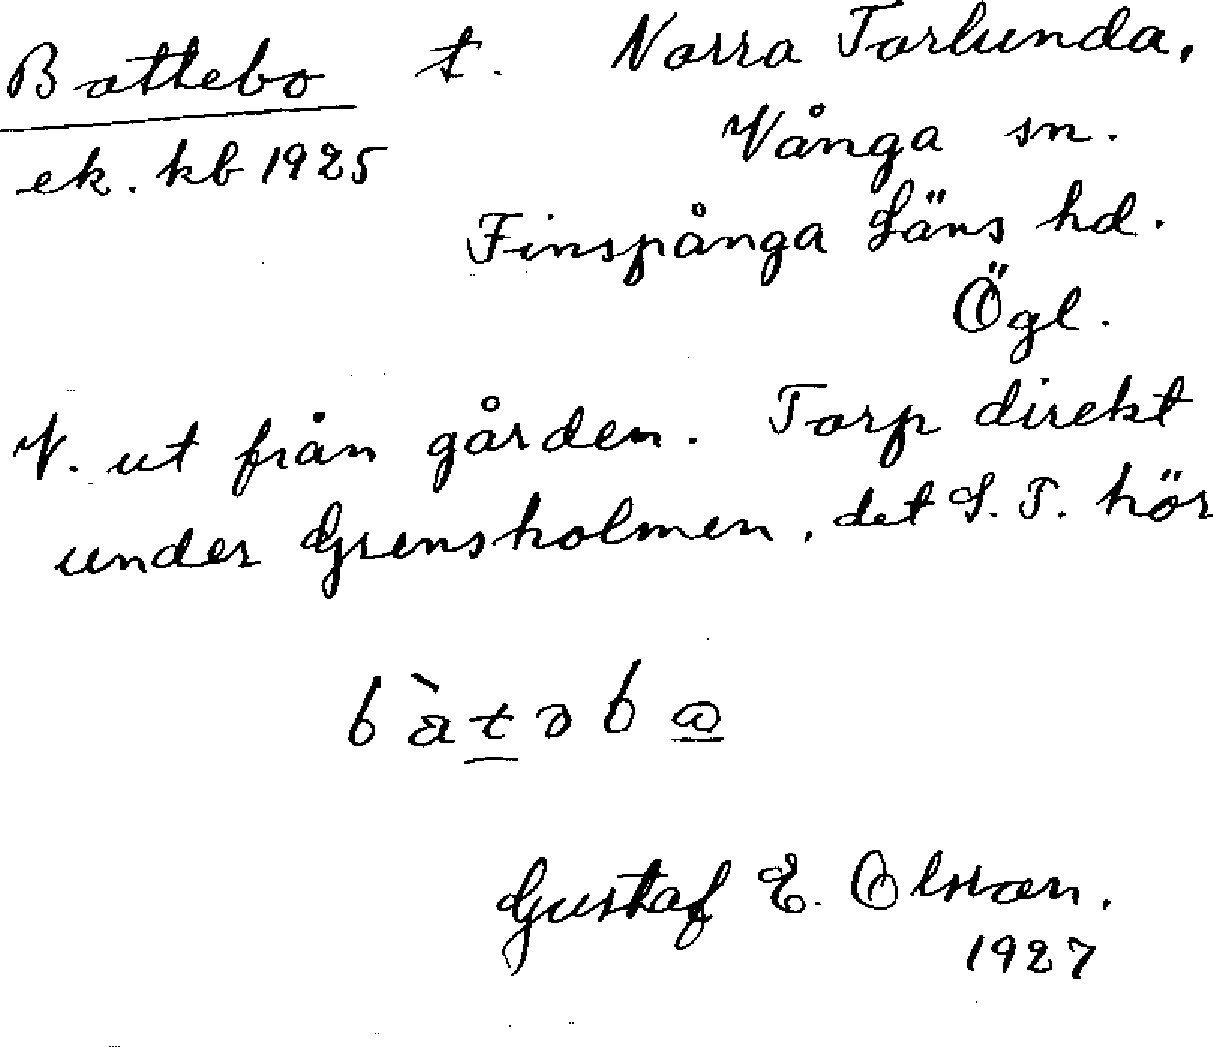 Battebo t. Norra Torlunda,
ek. kb 1925 Vånga sn.
Finspånga Läns hd.
Ögl.
V. ut från gården. Torp direkt
under Grensholmen, det S. T. hör
bàtəbω
Gustaf E. Olsson.
1927